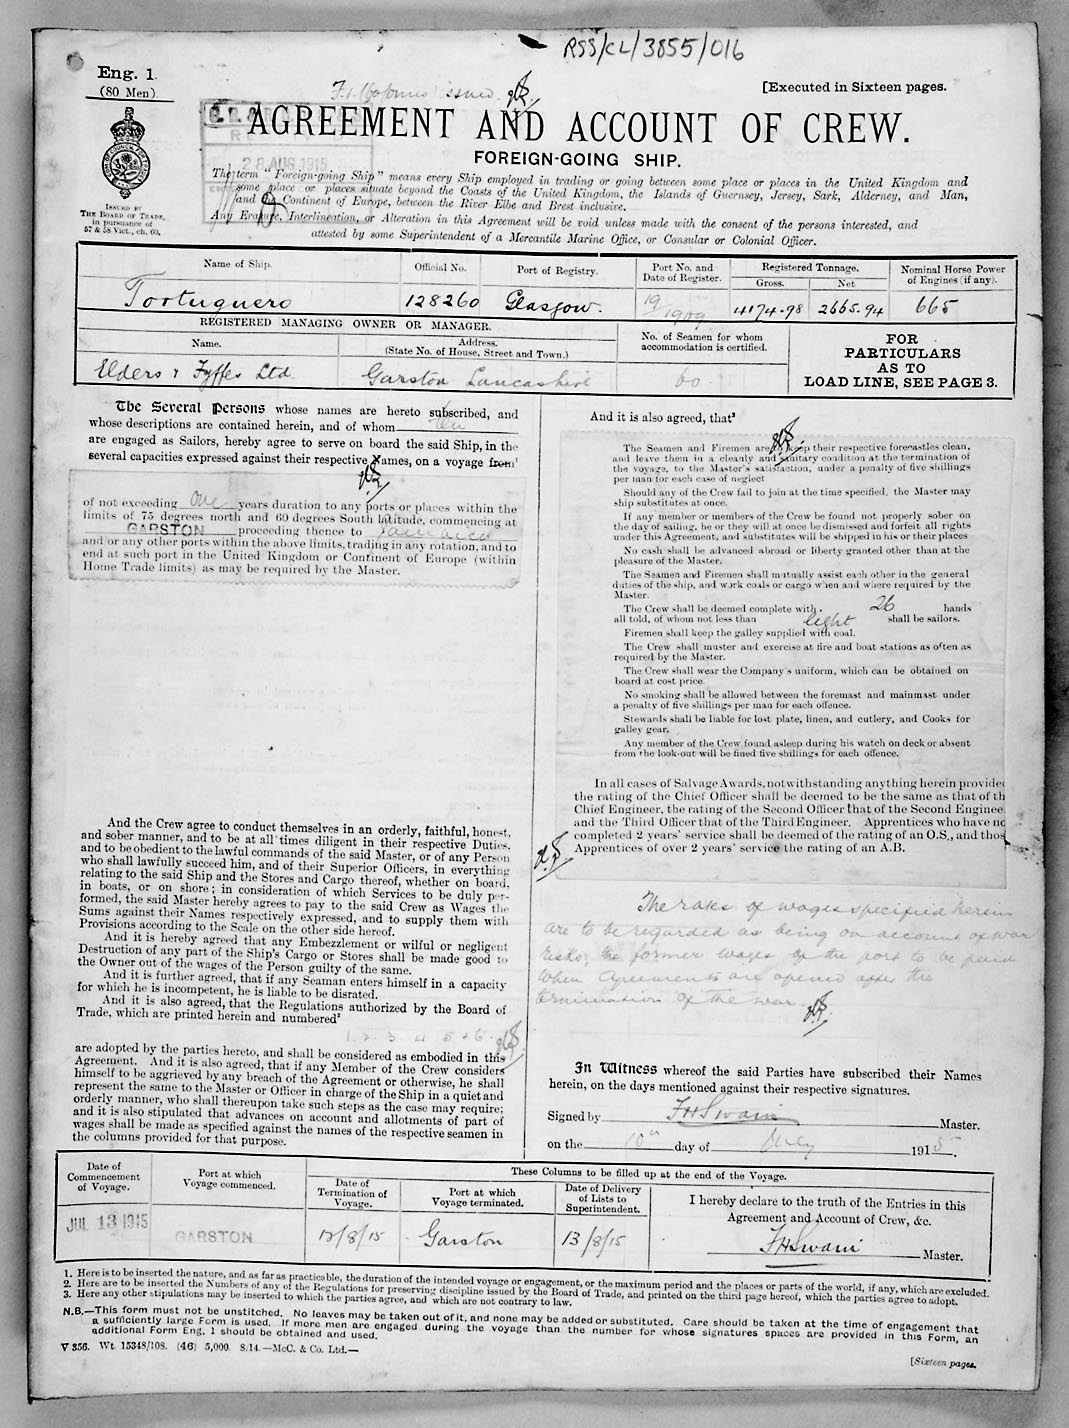 RSS/CL/3855/016
Eng. 1.
(80 Men)
issued
[Executed in Sixteen pages.
AGREEMENT AND ACCOUNT OF CREW.
FOREIGN-GOING SHIP.
28 AUG 1915
The term "Foreign-going Ship" means every Ship employed in trading or going between some place or places in the United Kingdom and
some place or places situate beyond the Coasts of the United Kingdom, the Islands of Guernsey, Jersey, Sark, Alderney, and Man,
and Continent of Europe, between the River Elbe and Brest inclusive.
Any Erasure, Interlineation, or Alteration in this Agreement will be void unless made with the consent of the persons interested, and
attested by some Superintendent of a Mercantile Marine Office, or Consular or Colonial Officer.
ISSUED BY
THE BOARD OF TRADE,
in pursuance of
57 & 58 Vict., ch. 60.
Name of Ship. Official No. Port of Registry. Port No. and Date of Register. Registered Tonnage. Gross. Net Nominal Horse Power of Engines (if any).
Tortuguero 128260 Glasgow. 19/1909 4174.98 2665.94 665
REGISTERED MANAGING OWNER OR MANAGER.
Name. Address. (State No. of House, Street and Town.) No. of Seamen for whom accommodation is certified.
Elders & Fyffes Ltd. Garston Lancashire 60.
FOR
PARTICULARS
AS TO
LOAD LINE, SEE PAGE 3.
The Several Persons whose names are hereto subscribed, and
whose descriptions are contained herein, and of whom ten
are engaged as Sailors, hereby agree to serve on board the said Ship, in the
several capacities expressed against their respective Names, on a voyage from¹
of not exceeding One years duration to any ports or places within the
limits of 75 degrees north and 60 degrees South latitude, commencing at
GARSTON proceeding thence to Jamaica
and or any other ports within the above limits, trading in any rotation, and to
end at such port in the United Kingdom or Continent of Europe (within
Home Trade limits) as may be required by the Master.
And the Crew agree to conduct themselves in an orderly, faithful, honest,
and sober manner, and to be at all times diligent in their respective Duties,
and to be obedient to the lawful commands of the said Master, or of any Person
who shall lawfully succeed him, and of their Superior Officers, in everything
relating to the said Ship and the Stores and Cargo thereof, whether on board,
in boats, or on shore; in consideration of which Services to be duly per-
formed, the said Master hereby agrees to pay to the said Crew as Wages the
Sums against their Names respectively expressed, and to supply them with
Provisions according to the Scale on the other side hereof.
And it is hereby agreed that any Embezzlement or wilful or negligent
Destruction of any part of the Ship's Cargo or Stores shall be made good to
the Owner out of the wages of the Person guilty of the same.
And it is further agreed, that if any Seaman enters himself in a capacity
for which he is incompetent, he is liable to be disrated.
And it is also agreed, that the Regulations authorized by the Board of
Trade, which are printed herein and numbered²
1. 2. 3. 4 5 + 6.
are adopted by the parties hereto, and shall be considered as embodied in this
Agreement. And it is also agreed, that if any Member of the Crew considers
himself to be aggrieved by any breach of the Agreement or otherwise, he shall
represent the same to the Master or Officer in charge of the Ship in a quiet and
orderly manner, who shall thereupon take such steps as the case may require;
and it is also stipulated that advances on account and allotments of part of
wages shall be made as specified against the names of the respective seamen in
the columns provided for that purpose.
And it is also agreed, that³
The Seamen and Firemen are to keep their respective forecastles clean,
and leave them in a cleanly and sanitary condition at the termination of
the voyage, to the Master's satisfaction, under a penalty of five shillings
per man for each case of neglect
Should any of the Crew fail to join at the time specified, the Master may
ship substitutes at once.
If any member or members of the Crew be found not properly sober on
the day of sailing, he or they will at once be dismissed and forfeit all rights
under this Agreement, and substitutes will be shipped in his or their places
No cash shall be advanced abroad or liberty granted other than at the
pleasure of the Master.
The Seamen and Firemen shall mutually assist each other in the general
duties of the ship, and work coals or cargo when and where required by the
Master.
The Crew shall be deemed complete with 26 hands
all told, of whom not less than eight shall be sailors.
Firemen shall keep the galley supplied with coal.
The Crew shall muster and exercise at fire and boat stations as often as
required by the Master.
The Crew shall wear the Company's uniform, which can be obtained on
board at cost price
No smoking shall be allowed between the foremast and mainmast under
a penalty of five shillings per man for each offence.
Stewards shall be liable for lost plate, linen, and cutlery, and Cooks for
galley gear.
Any member of the Crew found asleep during his watch on deck or absent
from the look-out will be fined five shillings for each offence.
In all cases of Salvage Awards, notwithstanding anything herein provide
the rating of the Chief Officer shall be deemed to be the same as that of th
Chief Engineer, the rating of the Second Officer that of the Second Enginee
and the Third Officer that of the Third Engineer. Apprentices who have no
completed 2 years' service shall be deemed of the rating of an O.S., and thos
Apprentices of over 2 years' service the rating of an A.B.
The rates of wages specified herein
are to be regarded as being on account of war
risks, the former wages of the port to be paid
when Agreements are opened after the
termination of the war.
In Witness whereof the said Parties have subscribed their Names
herein, on the days mentioned against their respective signatures.
Signed by FHSwain Master.
on the 10th day of July 1915.
Date of Commencement of Voyage. Port at which Voyage commenced. These Columns to be filled up at the end of the Voyage.
Date of Termination of Voyage. Port at which Voyage terminated. Date of Delivery of Lists to Superintendent.
I hereby declare to the truth of the Entries in this
Agreement and Account of Crew, &c.
JUL 13 1915 GARSTON 12/8/15 Garston 13/8/15
FHSwain Master.
1. Here is to be inserted the nature, and as far as practicable, the duration of the intended voyage or engagement, or the maximum period and the places or parts of the world, if any, which are excluded.
2. Here are to be inserted the Numbers of any of the Regulations for preserving discipline issued by the Board of Trade, and printed on the third page hereof, which the parties agree to adopt.
3. Here any other stipulations may be inserted to which the parties agree, and which are not contrary to law.
N.B.—This form must not be unstitched. No leaves may be taken out of it, and none may be added or substituted. Care should be taken at the time of engagement that
a sufficiently large Form is used. If more men are engaged during the voyage than the number for whose signatures spaces are provided in this Form, an
additional Form Eng. 1 should be obtained and used.
V 356. Wt. 15348/108. (46) 5,000. 8/14.—McC. & Co. Ltd.—
[Sixteen pages.